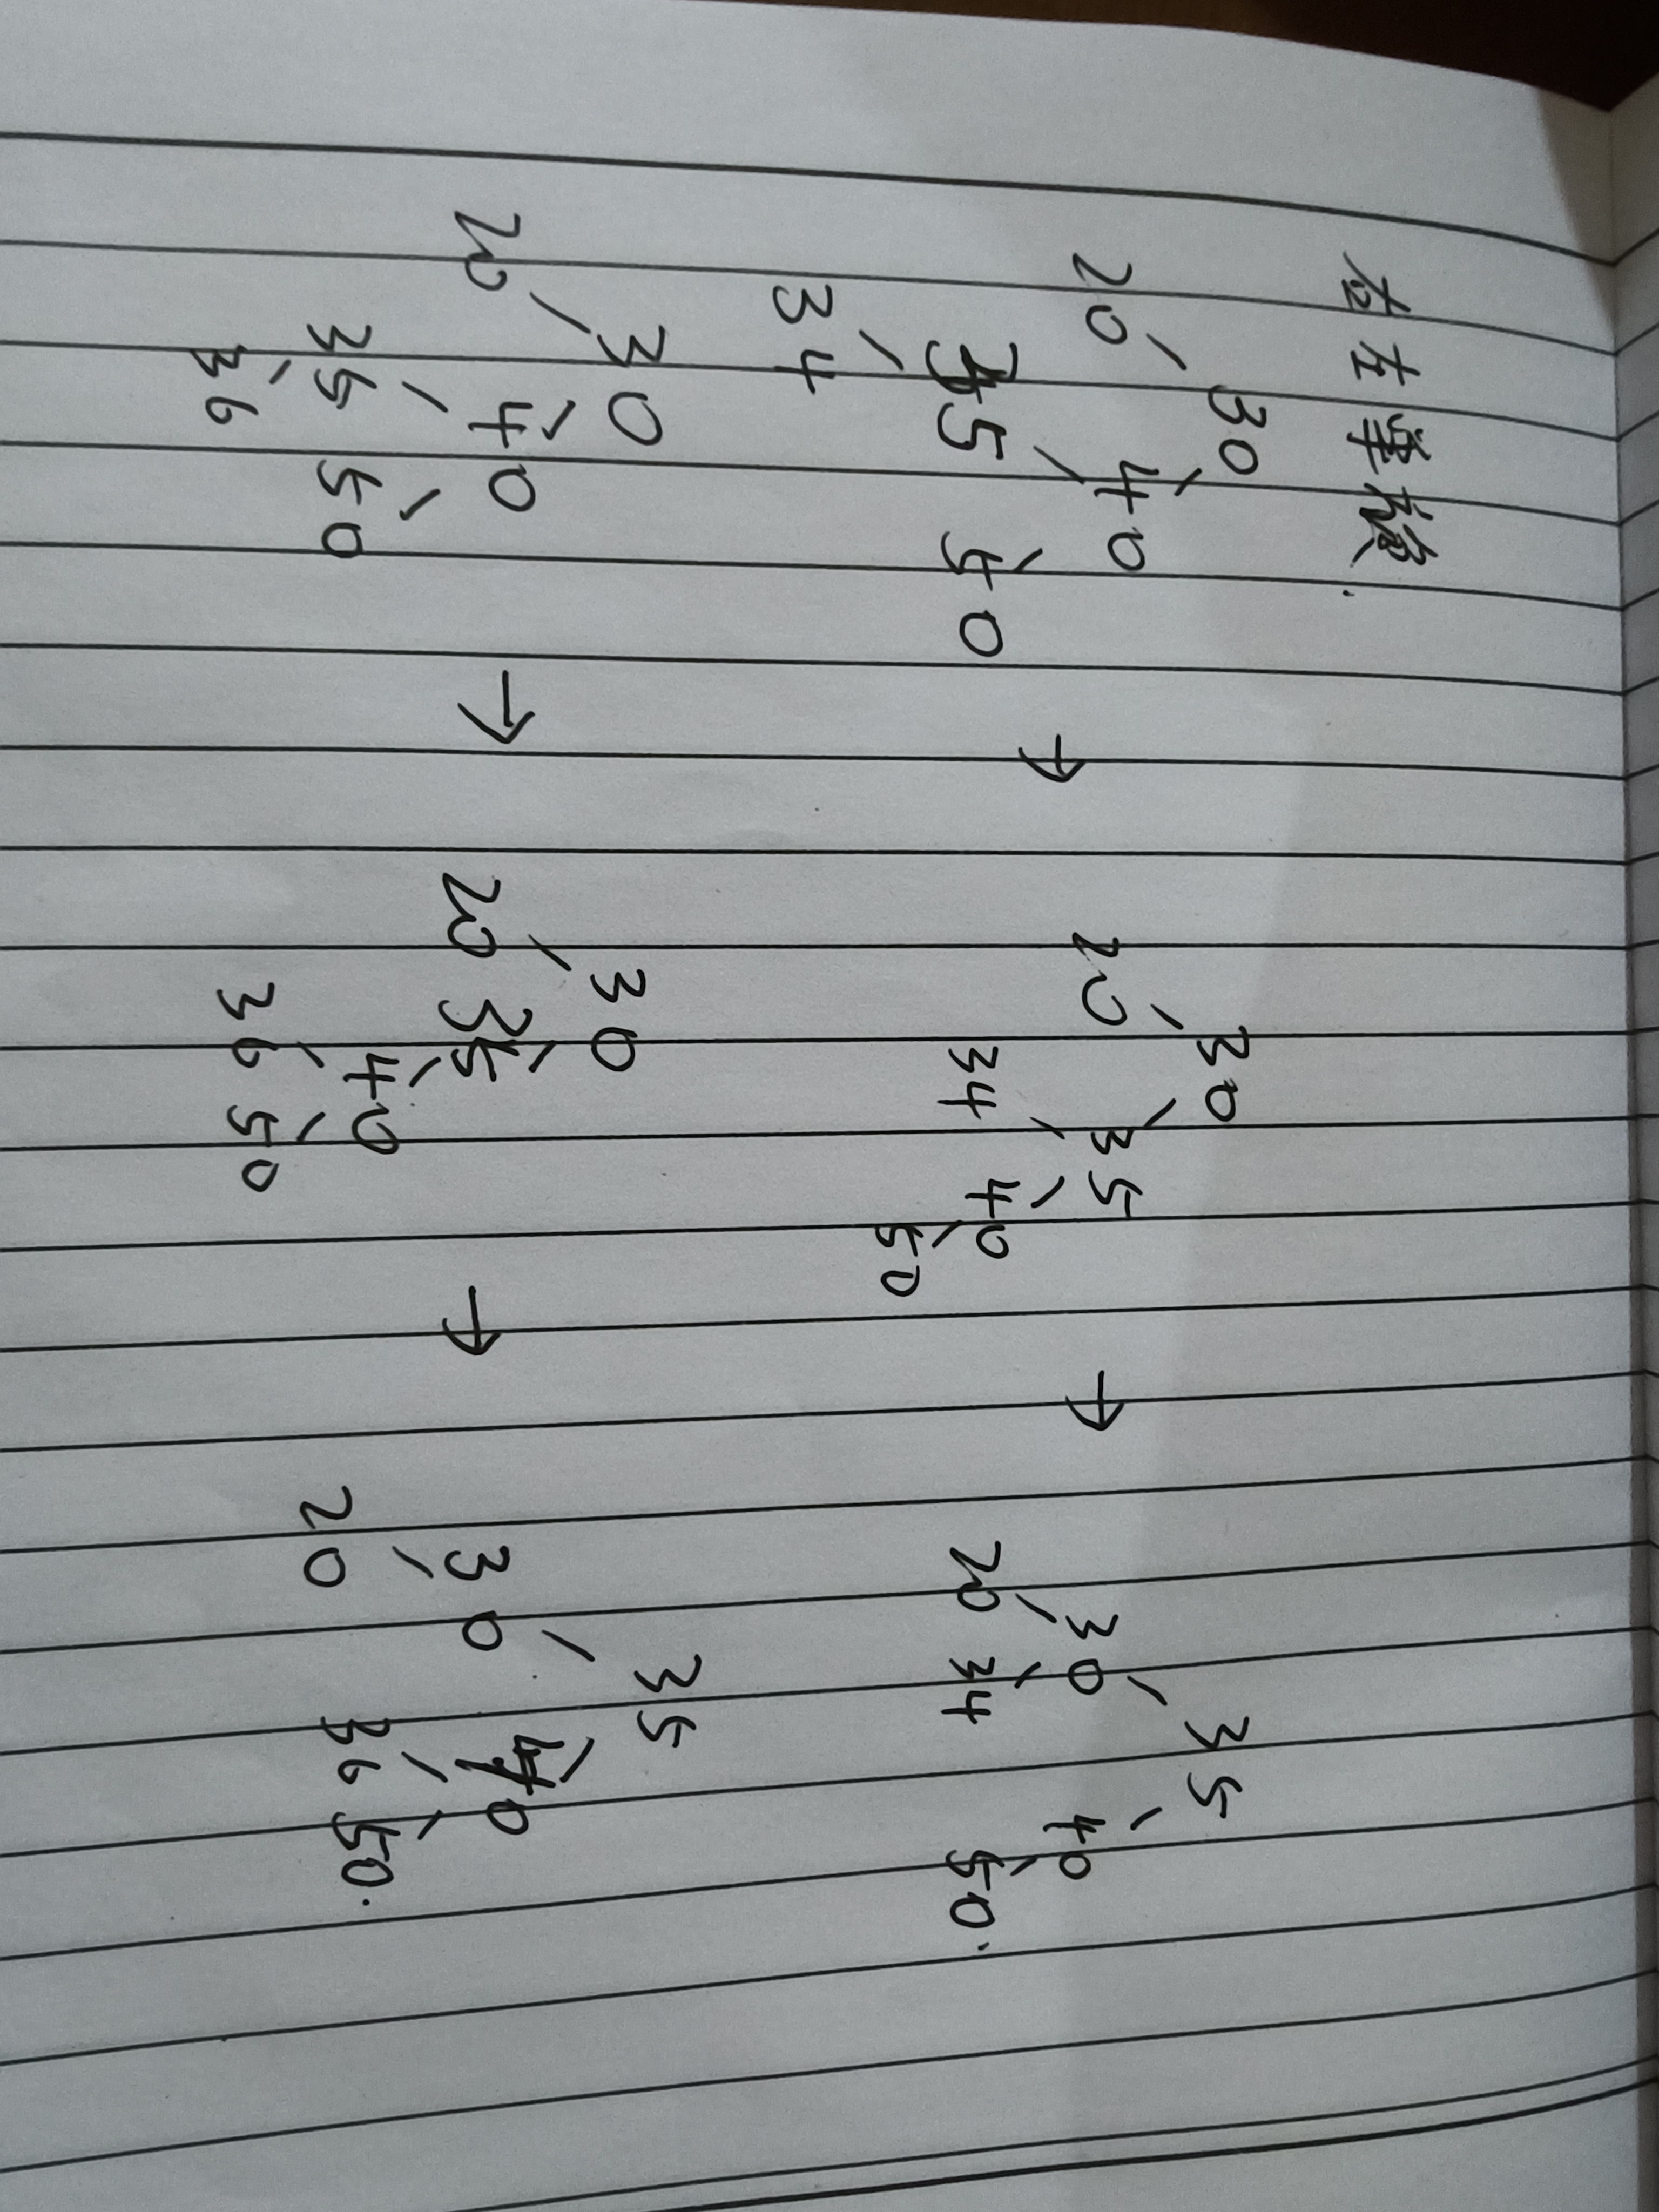 右左单旋.
30
20 40
35 50
34
→
30
20 35
34 40
50
→
35
30 40
20 34 50.
30
20 40
35 50
36
→
30
20 35
40
36 50
→
35
30 40
20 36 50.